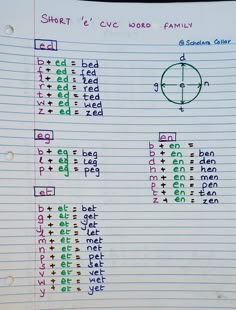 SHORT 'e' CVC WORD FAMILY
@ Scholars Collar
ed
b + ed = bed
f + ed = fed
l + ed = led
r + ed = red
t + ed = ted
w + ed = wed
z + ed = zed
d
g e n
t
eg
b + eg = beg
l + eg = leg
p + eg = peg
en
b + en =
b + en = ben
d + en = den
h + en = hen
m + en = men
p + en = pen
t + en = ten
z + en = zen
et
b + et = bet
g + et = get
+ et = jet
l + et = let
m + et = met
n + et = net
p + et = pet
s + et = set
v + et = vet
w + et = wet
y + et = yet